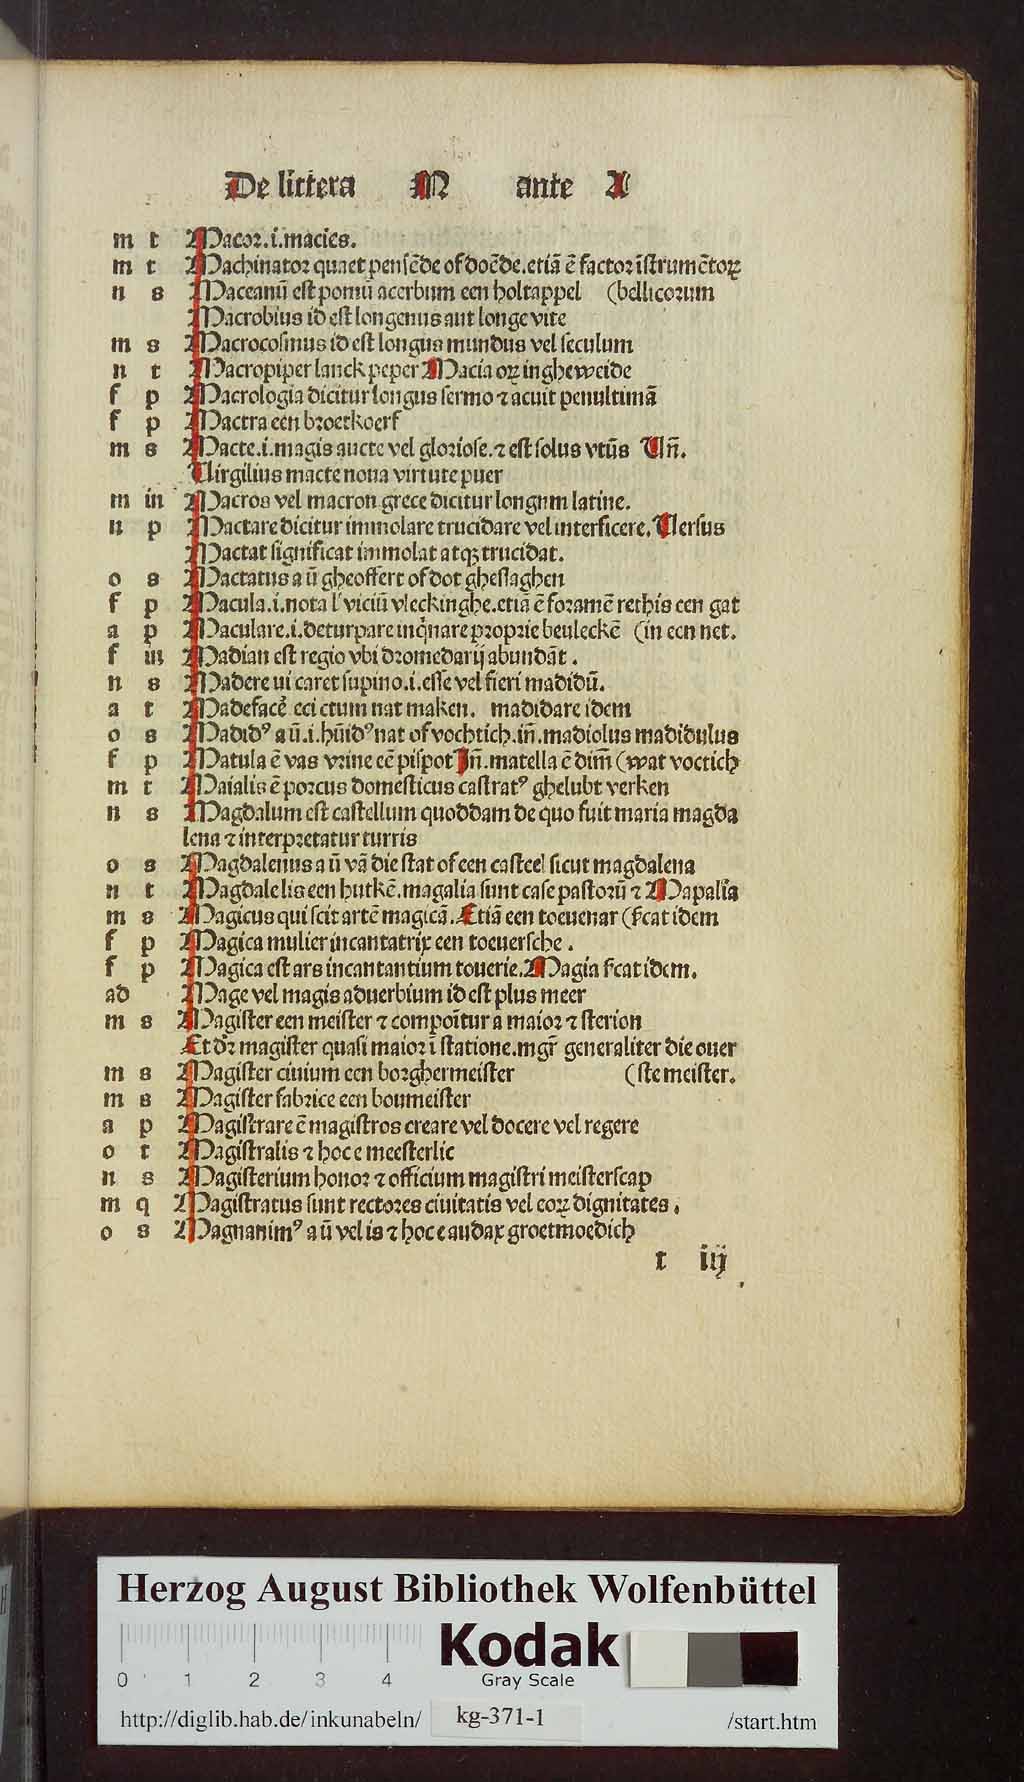 De littera M ante A
m t Macoꝛ.i.macies.
m t Machinatoꝛ quaet penſēde of doēde.etiā ē factoꝛ īſtrumētoꝝ
n s Maceanū eſt pomū acerbum een holtappel (bellicoꝛum
Macrobius id eſt longenus aut longe vite
m s Macrocoſmus id eſt longus mundus vel ſeculum
n t Macropiper lanck peper Macia oꝝ ingheweide
f p Macrologia dicitur longus ſermo ⁊ acuit penultimā
f p Mactra een bꝛoetkoerf
m s Macte.i.magis aucte vel gloꝛioſe.⁊ eſt ſolus vtūs Un̄.
Uirgilius macte noua virtute puer
m in Macros vel macron grece dicitur longnm latine.
n p Mactare dicitur immolare trucidare vel interficere. Uerſus
Mactat ſignificat immolat atqꝫ trucidat.
o s Mactatus a ū gheoffert of dot gheſlaghen
f p Macula.i.nota lˀ viciū vleckinghe.etiā ē foꝛamē rethis een gat
a p Maculare.i.deturpare inqͥnare pꝛopꝛie beuleckē (in een net.
f in Madian eſt regio vbi dꝛomedarij abundāt.
n s Madere ui caret ſupino.i.eſſe vel fieri madidū.
a t Madefaceͤ eci ctum nat maken. madidare idem
o s Madidꝰ a ū.i.hūidꝰ nat of vochtich.in̄.madiolus madidulus
f p Matula ē vas vꝛine eē piſpot In̄.matella ē dim̄ (wat voctich
m t Maialis ē poꝛcus domeſticus caſtratꝰ ghelubt verken
n s Magdalum eſt caſtellum quoddam de quo fuit maria magda
lena ⁊ interpꝛetatur turris
o s Magdalenus a ū vā die ſtat of een caſteel ſicut magdalena
n t Magdale lis een hutkē.magalia ſunt caſe paſtoꝛū ⁊ Mapalia
m s Magicus qui ſcit artē magicā. Etiā een toeuenar (fͥcat idem
f p Magica mulier incantatrix een toeuerſche.
f p Magica eſt ars incantantium touerie. Magia ſͥcat idem.
ad Mage vel magis aduerbium id eſt plus meer
m s Magiſter een meiſter ⁊ compoītur a maioꝛ ⁊ ſterion
Et dꝛ̄ magiſter quaſi maioꝛ ī ſtatione.mgr̄ generaliter die ouer
m s Magiſter ciuium een boꝛghermeiſter (ſte meiſter.
m s Magiſter fabꝛice een boumeiſter
a p Magiſtrare ē magiſtros creare vel docere vel regere
o t Magiſtralis ⁊ hoc e meeſterlic
n s Magiſterium honoꝛ ⁊ officium magiſtri meiſterſcap
m q Magiſtratus ſunt rectoꝛes ciuitatis vel eoꝝ dignitates.
o s Magnanimꝰ a ū vel is ⁊ hoc e audax groetmoedich
t iij
Herzog August Bibliothek Wolfenbüttel
Kodak
Gray Scale
0 1 2 3 4
http://diglib.hab.de/inkunabeln/ kg-371-1 /start.htm